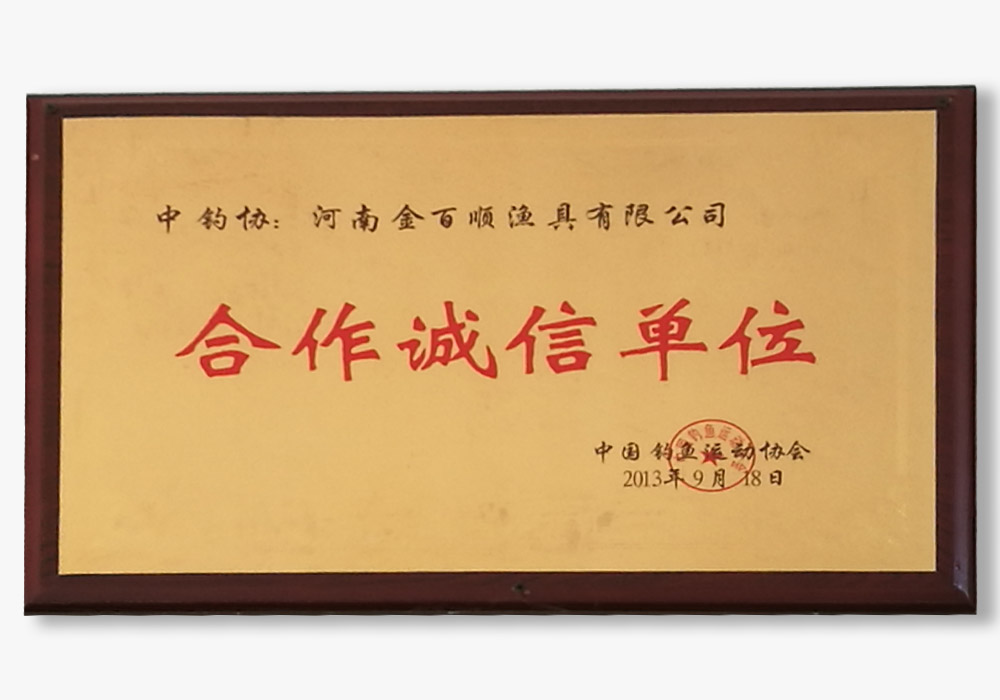 中钓协：河南金百顺渔具有限公司
合作诚信单位
中国钓鱼运动协会
2013年9月18日